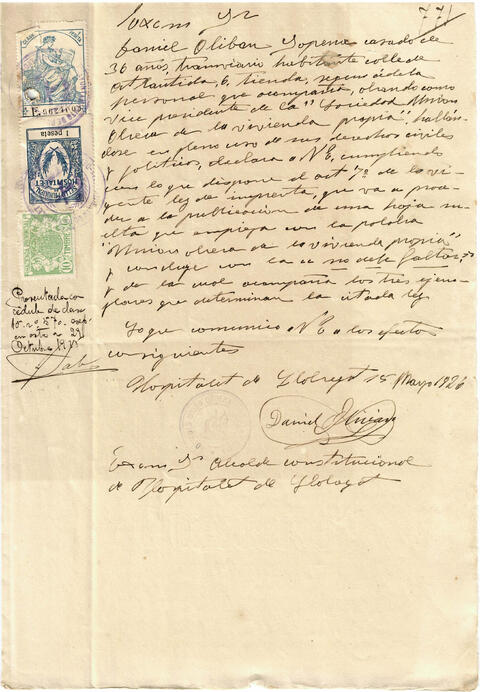 Excmo Sr
Daniel Oliban Soprena casado de
36 años, tranviario habitante calle de
Atlantida, 6, tienda, segun cédula
personal que acompaña, obrando como
Vice presidente de la "Sociedad Union
Obrera de la vivienda propia", hallan-
dose en pleno uso de sus derechos civiles
y politicos, declara a V.E, cumpliendo
con lo que dispone el art 7º de la vi-
gente ley de imprenta, que va a proce-
der a la publicacion de una hoja su-
elta que empieza con la palabra
"Union obrera de la vivienda propia"
y concluye con la no debe faltar
y de la cual acompaña los tres ejem-
plares que determinan la citada ley
Lo que comunico V.E a los efectos
consiguientes
Hospitalet de Llobregat 15 Mayo 1926
Daniel Oliban
Excmo Sr Alcalde constitucional
de Hospitalet de Llobregat
1 peseta
HOSPITALET
10
Presentada con
cédula de clase
Octubre